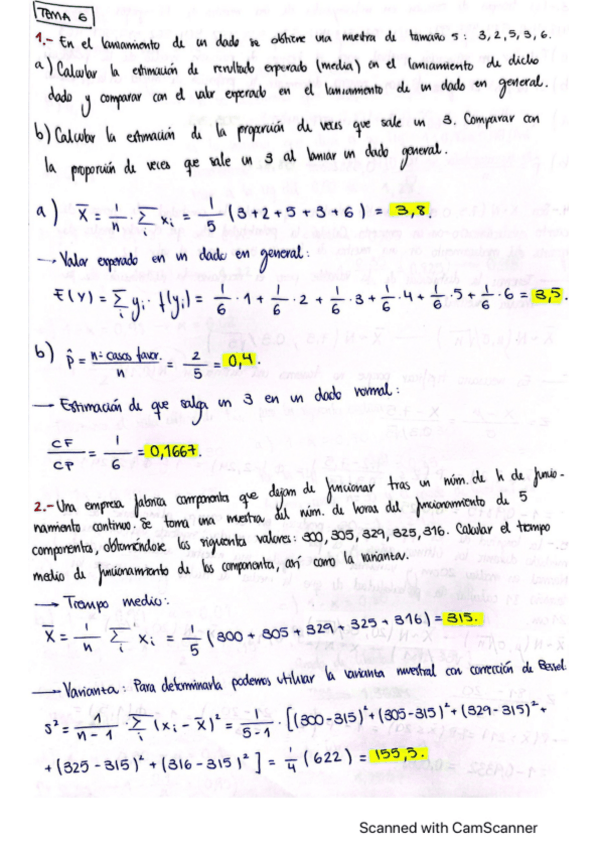 TEMA 6
1.- En el lanzamiento de un dado se obtiene una muestra de tamaño 5: 3, 2, 5, 3, 6.
a) Calcular la estimación de resultado esperado (media) en el lanzamiento de dicho
dado y comparar con el valor esperado en el lanzamiento de un dado en general.
b) Calcular la estimación de la proporción de veces que sale un 3. Comparar con
la proporción de veces que sale un 3 al lanzar un dado general.
a) X̄ = 1/n · Σᵢ xᵢ = 1/5 (3+2+5+3+6) = 3,8.
→ Valor esperado en un dado en general:
E(Y) = Σᵢ yᵢ · f(yᵢ) = 1/6 · 1 + 1/6 · 2 + 1/6 · 3 + 1/6 · 4 + 1/6 · 5 + 1/6 · 6 = 3,5.
b) p̂ = nº casos favor. / n = 2/5 = 0,4.
→ Estimación de que salga un 3 en un dado normal:
CF/CP = 1/6 = 0,1667.
2.- Una empresa fabrica componentes que dejan de funcionar tras un núm. de h de funcio-
namiento continuo. Se toma una muestra del núm. de horas del funcionamiento de 5
componentes, obteniéndose los siguientes valores: 300, 305, 329, 325, 316. Calcular el tiempo
medio de funcionamiento de los componentes, así como la varianza.
→ Tiempo medio:
X̄ = 1/n Σᵢ xᵢ = 1/5 (300 + 305 + 329 + 325 + 316) = 315.
→ Varianza: Para determinarla podemos utilizar la varianza muestral con corrección de Bessel:
s² = 1/(n-1) · Σᵢ (xᵢ - x̄)² = 1/(5-1) · [(300-315)² + (305-315)² + (329-315)² +
+ (325-315)² + (316-315)²] = 1/4 (622) = 155,5.
Scanned with CamScanner